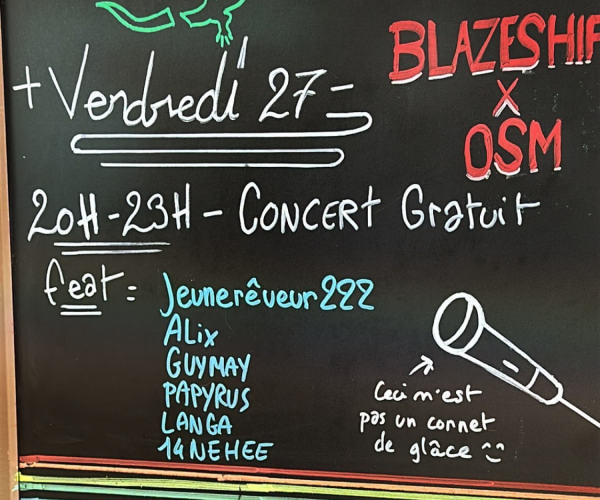 BLAZESHIF
X
OSM
+ Vendredi 27 =
20H - 23H - CONCERT Gratuit
feat :
Jeunerêveur222
ALix
GUYMAY
PAPYRUS
LANGA
14NEHEE
Ceci n'est
pas un cornet
de glâce